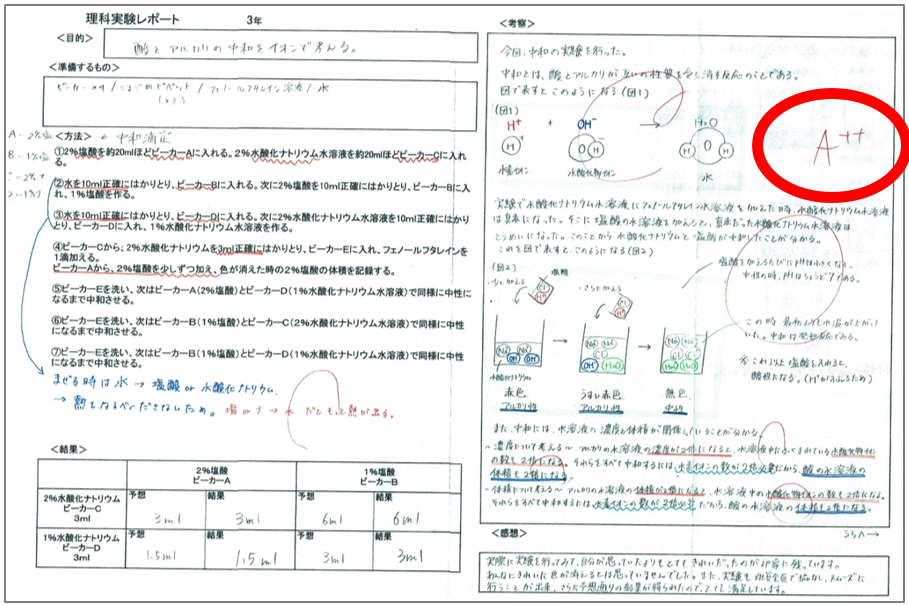 理科実験レポート 3年
<目的>
酸とアルカリの中和をイオンで考える。
<準備するもの>
ビーカー×4 / こまごめピペット / フェノールフタレイン溶液 / 水
(×3)
A…2%塩
B…1%塩
<方法> ← 中和滴定
①2%塩酸を約20mlほどビーカーAに入れる。2%水酸化ナトリウム水溶液を約20mlほどビーカーCに入れ
る。
②水を10ml正確にはかりとり、ビーカーBに入れる。次に2%塩酸を10ml正確にはかりとり、ビーカーBに入
れ、1%塩酸を作る。
③水を10ml正確にはかりとり、ビーカーDに入れる。次に2%水酸化ナトリウム水溶液を10ml正確にはか
りとり、ビーカーDに入れ、1%水酸化ナトリウム水溶液を作る。
④ビーカーCから、2%水酸化ナトリウムを3ml正確にはかりとり、ビーカーEに入れ、フェノールフタレインを
1滴加える。
ビーカーAから、2%塩酸を少しずつ加え、色が消えた時の2%塩酸の体積を記録する。
⑤ビーカーEを洗い、次はビーカーA(2%塩酸)とビーカーD(1%水酸化ナトリウム水溶液)で同様に中性に
なるまで中和させる。
⑥ビーカーEを洗い、次はビーカーB(1%塩酸)とビーカーC(2%水酸化ナトリウム水溶液)で同様に中性
になるまで中和させる。
⑦ビーカーEを洗い、次はビーカーB(1%塩酸)とビーカーD(1%水酸化ナトリウム水溶液)で同様に中性
になるまで中和させる。
まぜる時は水 → 塩酸 or 水酸化ナトリウム
→ 熱をなるべくださないため。
<結果>
2%塩酸 ビーカーA 1%塩酸 ビーカーB
2%水酸化ナトリウム ビーカーC 3ml 予想 3ml 結果 3ml 予想 6ml 結果 6ml
1%水酸化ナトリウム ビーカーD 3ml 1.5ml 1.5ml 3ml 3ml
<考察>
今回、中和の実験を行った。
中和とは、酸とアルカリが互いの性質を打ち消す反応のことである。
図で表すとこのようになる(図1)
(図1)
H⁺ + OH⁻ → H₂O
H⁺ O H H O H
水素イオン 水酸化物イオン 水
A⁺⁺
実験で水酸化ナトリウム水溶液にフェノールフタレイン溶液を加えた時、水酸化ナトリウム水溶液
は真赤になった。そこに塩酸の水溶液を加えると、真赤だった水酸化ナトリウム水溶液は
とうめいになった。このことから水酸化ナトリウムと塩酸が中和したことが分かる。
これを図で表すと、このようになる(図2)
(図2)
塩酸
・少し加える ・さらに加える
塩酸を加えるたびにpHは小さくなる。
中性の時、pHはちょうど7である。
この時 最初よりも水温が上がって
いた。中和は発熱反応である。
※これ以上塩酸を入れると、
酸性になる。(H⁺がふえるため)
水酸化ナトリウム
赤色 うすい赤色 無色
アルカリ性 アルカリ性 中性
また、中和には、水溶液の濃度と体積が関係していることが分かる。
~濃度について考える~ アルカリの水溶液の濃度が2倍になると、水溶液中にふくまれている水酸化物イオン
の数も2倍になる。それらをすべて中和するには、水素イオンの数が2倍必要だから、酸の水溶液の
体積も2倍になる。
~体積について考える~ アルカリの水溶液の体積が2倍になると、水溶液中の水酸化物イオンの数も2倍になる。
それらをすべて中和するには水素イオンの数が2倍必要だから、酸の水溶液の体積も2倍になる。
うらへ→
<感想>
実際に実験を行ってみて、自分が思っていたよりもとてもきれいだったのが印象に残っています。
あんなにきれいに色が消えるとは思っていませんでした。また、実験も班員全員で協力し、スムーズに
行うことが出来、さらに予想通りの結果が得られたので、とても満足しています。